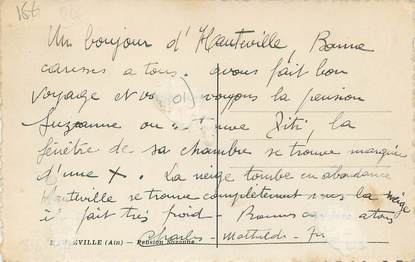 Un bonjour d'Hauteville, Bonne
caresses a tous. avons fait bon
voyage et vo voyons la pension
Suzanne ou se trouve Titi, la
fenêtre de sa chambre se trouve marquée
d'une X. La neige tombe en abondance
Hauteville se trouve complètement sous la neige
il fait très froid - Bonnes a tous
HAUTEVILLE (Ain) — Pension Suzanne
Charles - Mathilde -